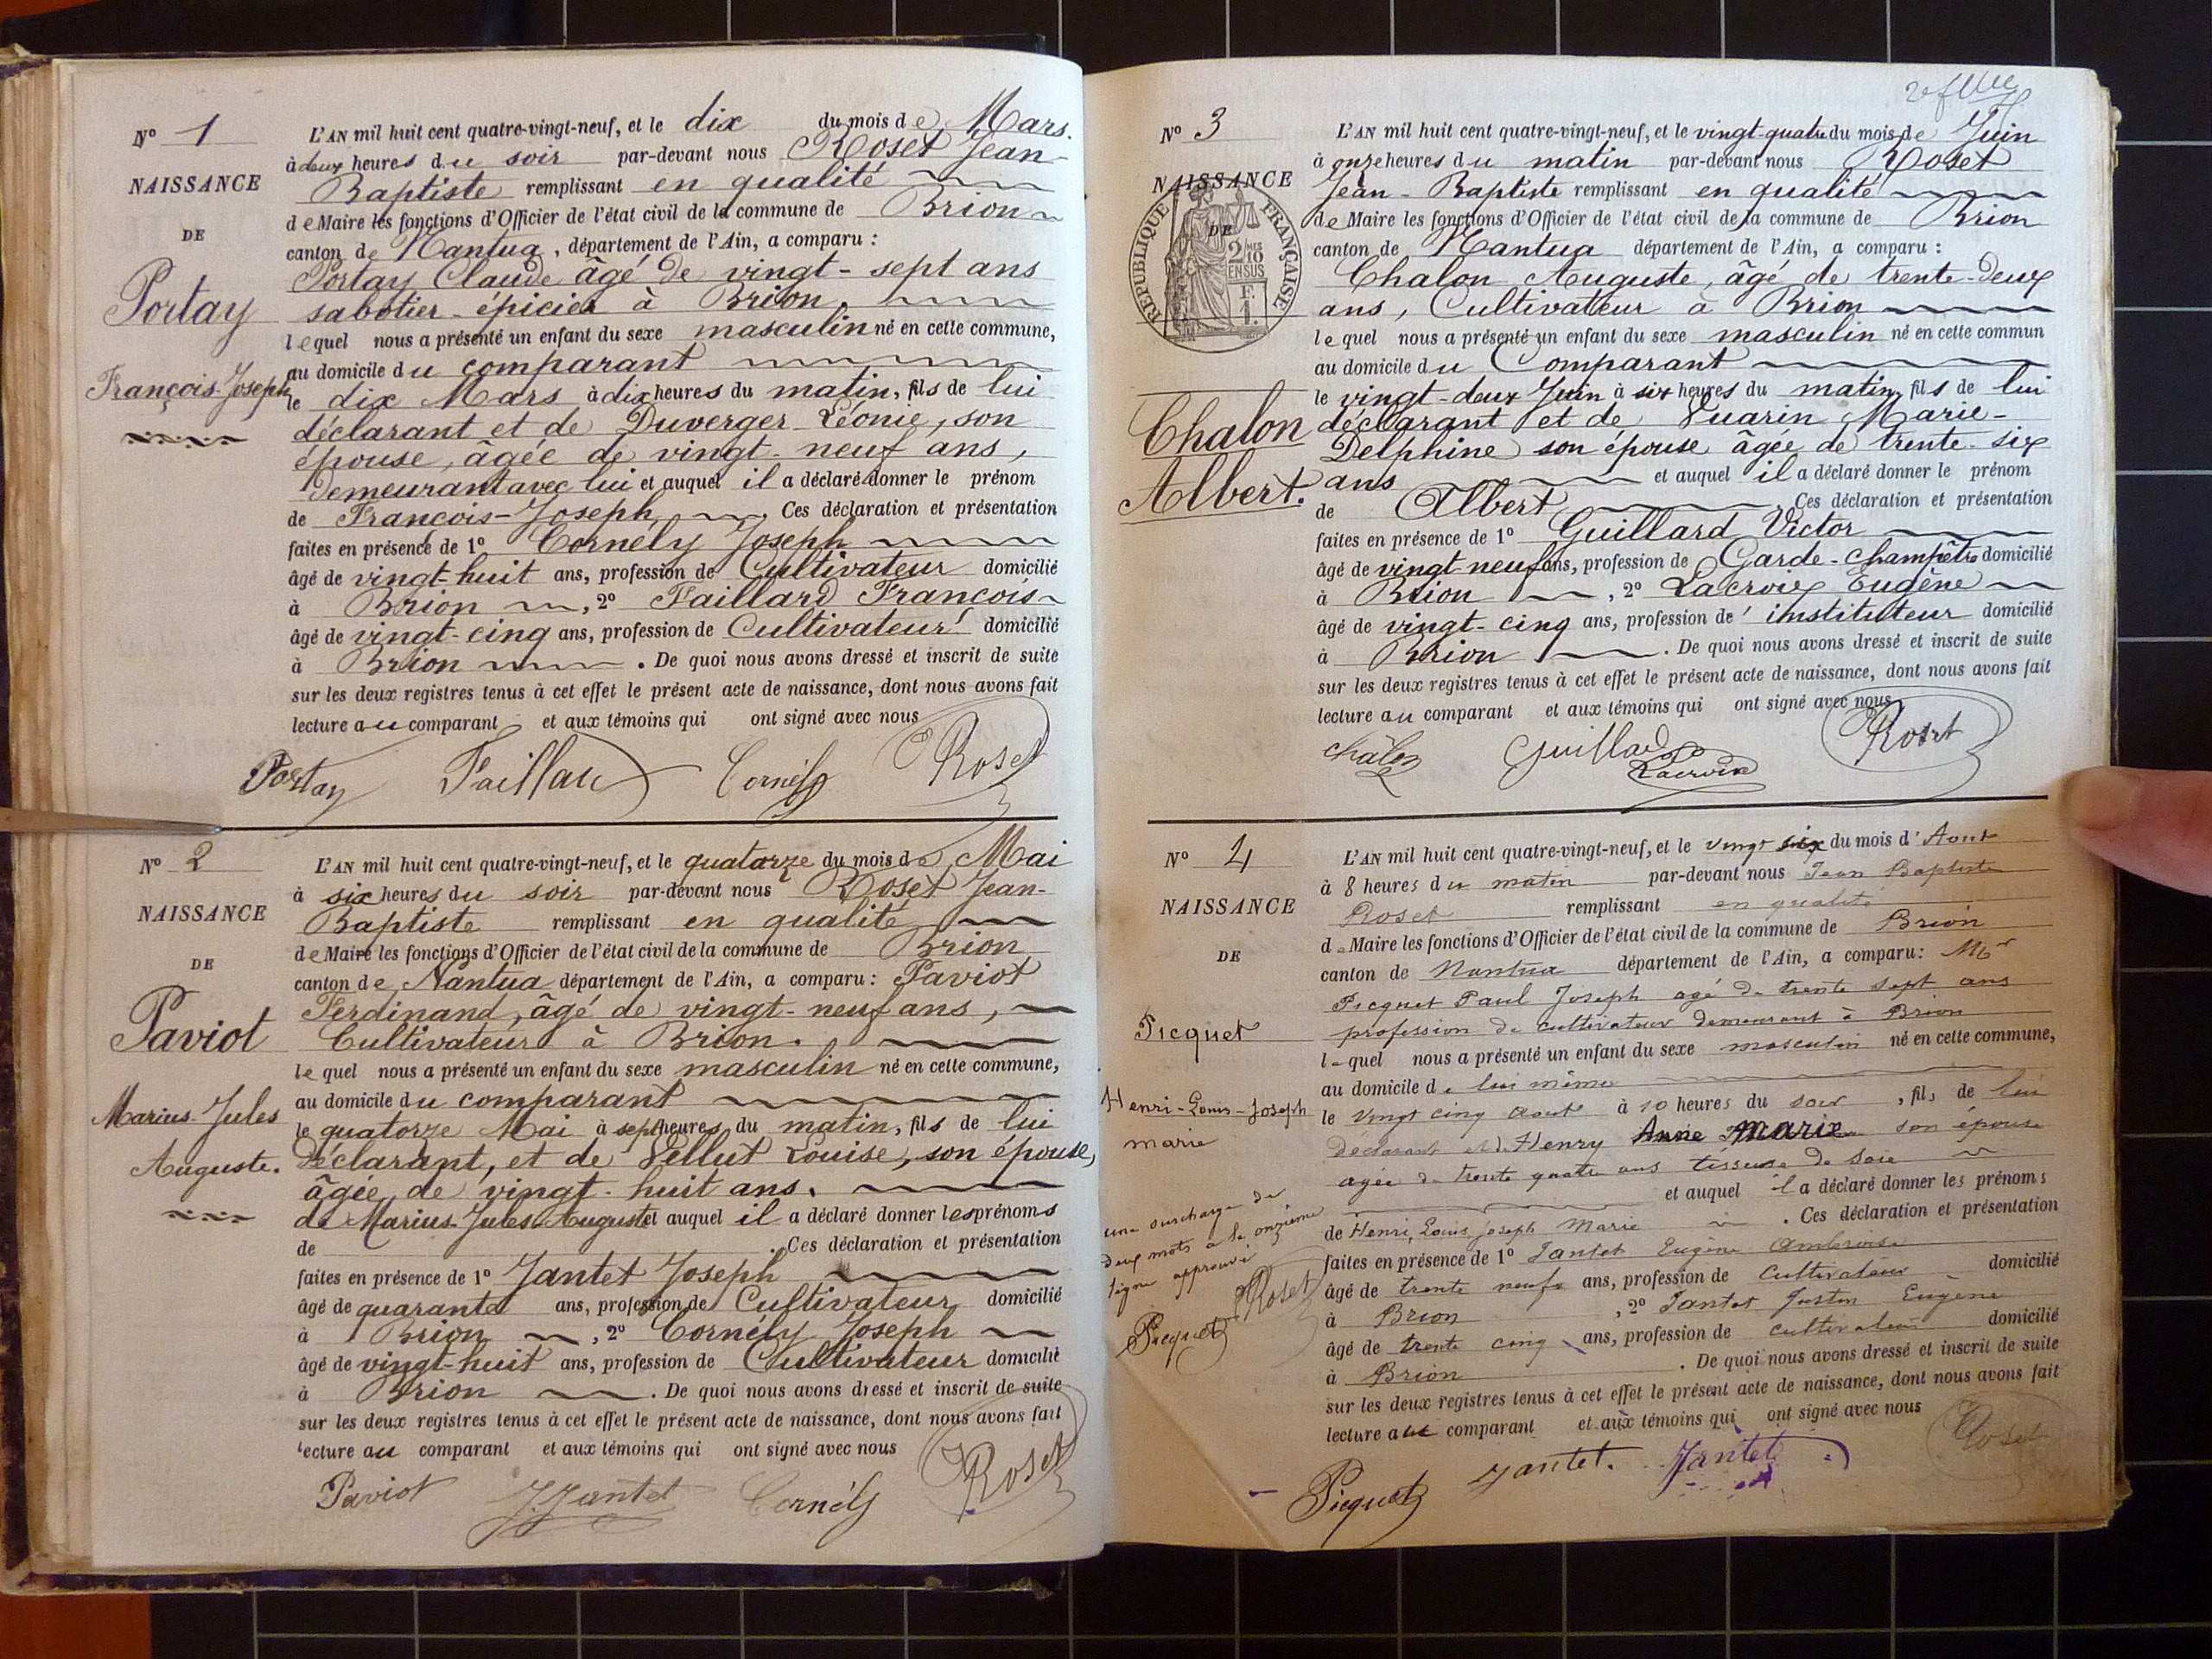 Nº 1
NAISSANCE
DE
Portay
François-Joseph
L'AN mil huit cent quatre-vingt-neuf, et le dix du mois de Mars.
à deux heures du soir par-devant nous Roset Jean-
Baptiste remplissant en qualité
de Maire les fonctions d'Officier de l'état civil de la commune de Brion
canton de Nantua, département de l'Ain, a comparu :
Portay Claude âgé de vingt-sept ans
sabotier-épicier à Brion.
lequel nous a présenté un enfant du sexe masculin né en cette commune,
au domicile du comparant
le dix Mars à dix heures du matin, fils de lui
déclarant et de Duverger Léonie, son
épouse, âgée de vingt-neuf ans,
demeurant avec lui et auquel il a déclaré donner le prénom
de François-Joseph. Ces déclaration et présentation
faites en présence de 1º Cornély Joseph
âgé de vingt-huit ans, profession de Cultivateur domicilié
à Brion, 2º Faillard François
âgé de vingt-cinq ans, profession de Cultivateur domicilié
à Brion. De quoi nous avons dressé et inscrit de suite
sur les deux registres tenus à cet effet le présent acte de naissance, dont nous avons fait
lecture au comparant et aux témoins qui ont signé avec nous
Portay Faillard Cornély Roset
Nº 2
NAISSANCE
DE
Paviot
Marius-Jules
Auguste.
L'AN mil huit cent quatre-vingt-neuf, et le quatorze du mois de Mai
à six heures du soir par-devant nous Roset Jean-
Baptiste remplissant en qualité
de Maire les fonctions d'Officier de l'état civil de la commune de Brion
canton de Nantua département de l'Ain, a comparu : Paviot
Ferdinand, âgé de vingt-neuf ans,
Cultivateur à Brion.
lequel nous a présenté un enfant du sexe masculin né en cette commune,
au domicile du comparant
le quatorze Mai à sept heures du matin, fils de lui
déclarant, et de Vellut Louise, son épouse,
âgée de vingt-huit ans.
de Marius-Jules-Auguste et auquel il a déclaré donner les prénoms
de . Ces déclaration et présentation
faites en présence de 1º Jantet Joseph
âgé de quarante ans, profession de Cultivateur domicilié
à Brion, 2º Cornély Joseph
âgé de vingt-huit ans, profession de Cultivateur domicilié
à Brion. De quoi nous avons dressé et inscrit de suite
sur les deux registres tenus à cet effet le présent acte de naissance, dont nous avons fait
lecture au comparant et aux témoins qui ont signé avec nous
Paviot J Jantet Cornély Roset
Nº 3
NAISSANCE
DE
RÉPUBLIQUE FRANÇAISE
2/10 EN SUS
Chalon
Albert.
L'AN mil huit cent quatre-vingt-neuf, et le vingt-quatre du mois de Juin
à onze heures du matin par-devant nous Roset
Jean-Baptiste remplissant en qualité
de Maire les fonctions d'Officier de l'état civil de la commune de Brion
canton de Nantua département de l'Ain, a comparu :
Chalon Auguste, âgé de trente-deux
ans, Cultivateur à Brion
lequel nous a présenté un enfant du sexe masculin né en cette commun
au domicile du Comparant
le vingt-deux Juin à six heures du matin, fils de lui
déclarant et de Vuarin Marie-
Delphine son épouse âgée de trente-six
ans et auquel il a déclaré donner le prénom
de Albert Ces déclaration et présentation
faites en présence de 1º Guillard Victor
âgé de vingt neuf ans, profession de Garde-champêtre domicilié
à Brion, 2º Lacroix Eugène
âgé de vingt-cinq ans, profession de instituteur domicilié
à Brion. De quoi nous avons dressé et inscrit de suite
sur les deux registres tenus à cet effet le présent acte de naissance, dont nous avons fait
lecture au comparant et aux témoins qui ont signé avec nous
Chalon Guillard Lacroix Roset
Nº 4
NAISSANCE
DE
Picquet
Henri-Louis-Joseph
marie
une surcharge de
deux mots a la onzième
ligne approuvé
Roset
Picquet
L'AN mil huit cent quatre-vingt-neuf, et le vingt six du mois d'Aout
à 8 heures du matin par-devant nous Jean Baptiste
Roset remplissant en qualité
de Maire les fonctions d'Officier de l'état civil de la commune de Brion
canton de Nantua département de l'Ain, a comparu : Mr
Picquet Paul Joseph agé de trente sept ans
profession de cultivateur demeurant à Brion
lequel nous a présenté un enfant du sexe masculin né en cette commune,
au domicile de lui même
le vingt cinq aout à 10 heures du soir, fils de lui
déclarant et de Henry Anne Marie son épouse
agée de trente quatre ans tisseuse de soie
et auquel il a déclaré donner les prénoms
de Henri, Louis Joseph Marie. Ces déclaration et présentation
faites en présence de 1º Jantet Eugène Ambroise
âgé de trente neuf ans, profession de cultivateur domicilié
à Brion, 2º Jantet Justin Eugène
âgé de trente cinq ans, profession de cultivateur domicilié
à Brion. De quoi nous avons dressé et inscrit de suite
sur les deux registres tenus à cet effet le présent acte de naissance, dont nous avons fait
lecture au comparant et aux témoins qui ont signé avec nous
Picquet Jantet. Jantet Roset